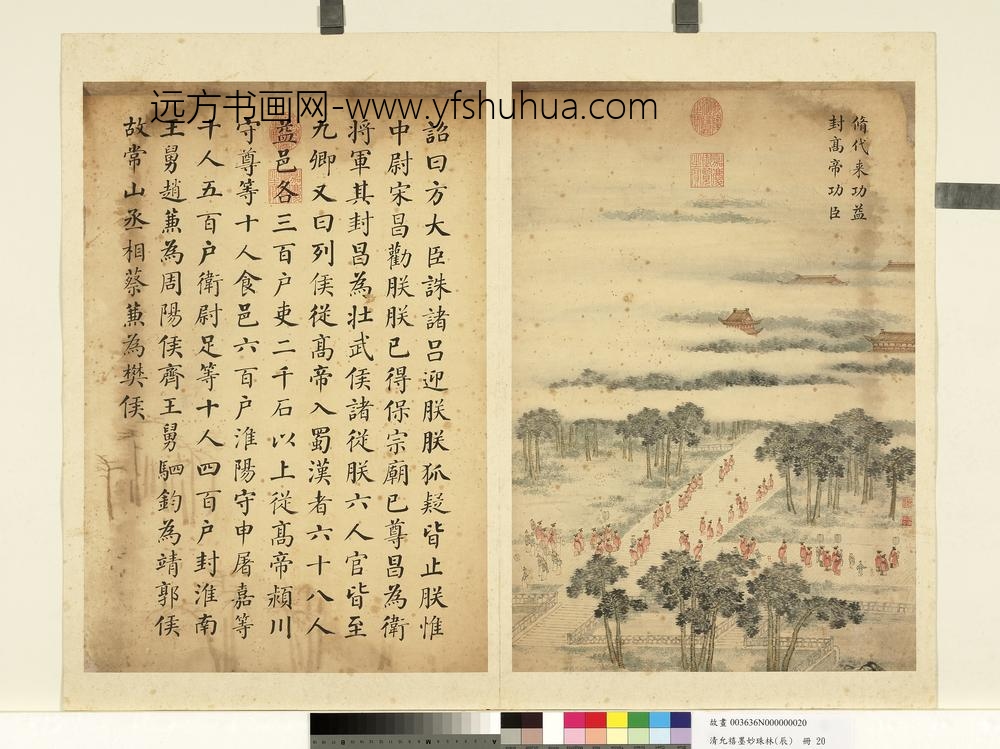 远方书画网-www.yfshuhua.com
脩代来功益
封髙帝功臣
詔曰方大臣誅諸呂迎朕朕狐疑皆止朕惟
中尉宋昌勸朕朕已得保宗廟已尊昌為衛
将軍其封昌為壮武侯諸從朕六人官皆至
九卿又曰列侯從髙帝入蜀漢者六十八人
益邑各三百户吏二千石以上從髙帝潁川
守尊等十人食邑六百户淮陽守申屠嘉等
十人五百户衛尉足等十人四百户封淮南
王舅趙蒹為周陽侯齊王舅駟鈞為靖郭侯
故常山丞相蔡蒹為樊侯
故畫 003636N000000020
清允禧墨妙珠林(辰) 冊 20